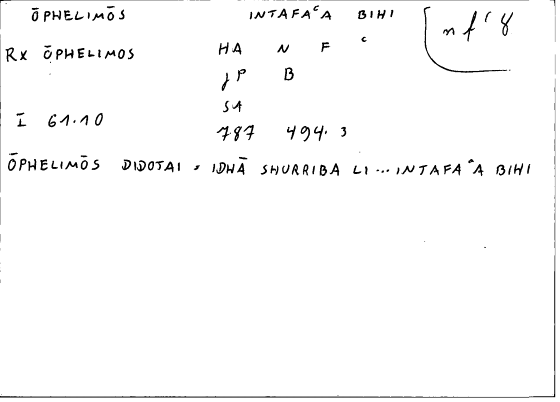 ŌPHELIMŌS INTAFAᶜA BIHI nfᶜ 8
RX ŌPHELIMOS HA N F ᶜ
JP B
SA
I 61.10 787 494.3
ŌPHELIMŌS DIDOTAI = IDHĀ SHURRIBA LI ... INTAFAᶜA BIHI